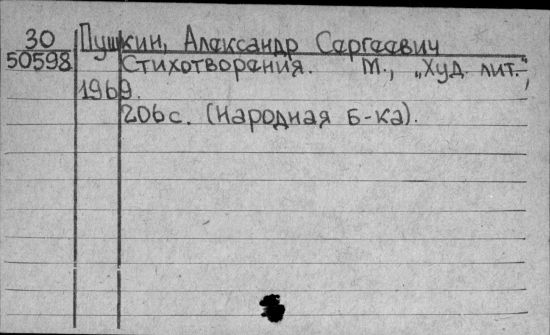 30
50598
Пушкин, Александр Сергеевич
Стихотворения. М., „Худ. лит.",
1969.
206с. (Народная б-ка).